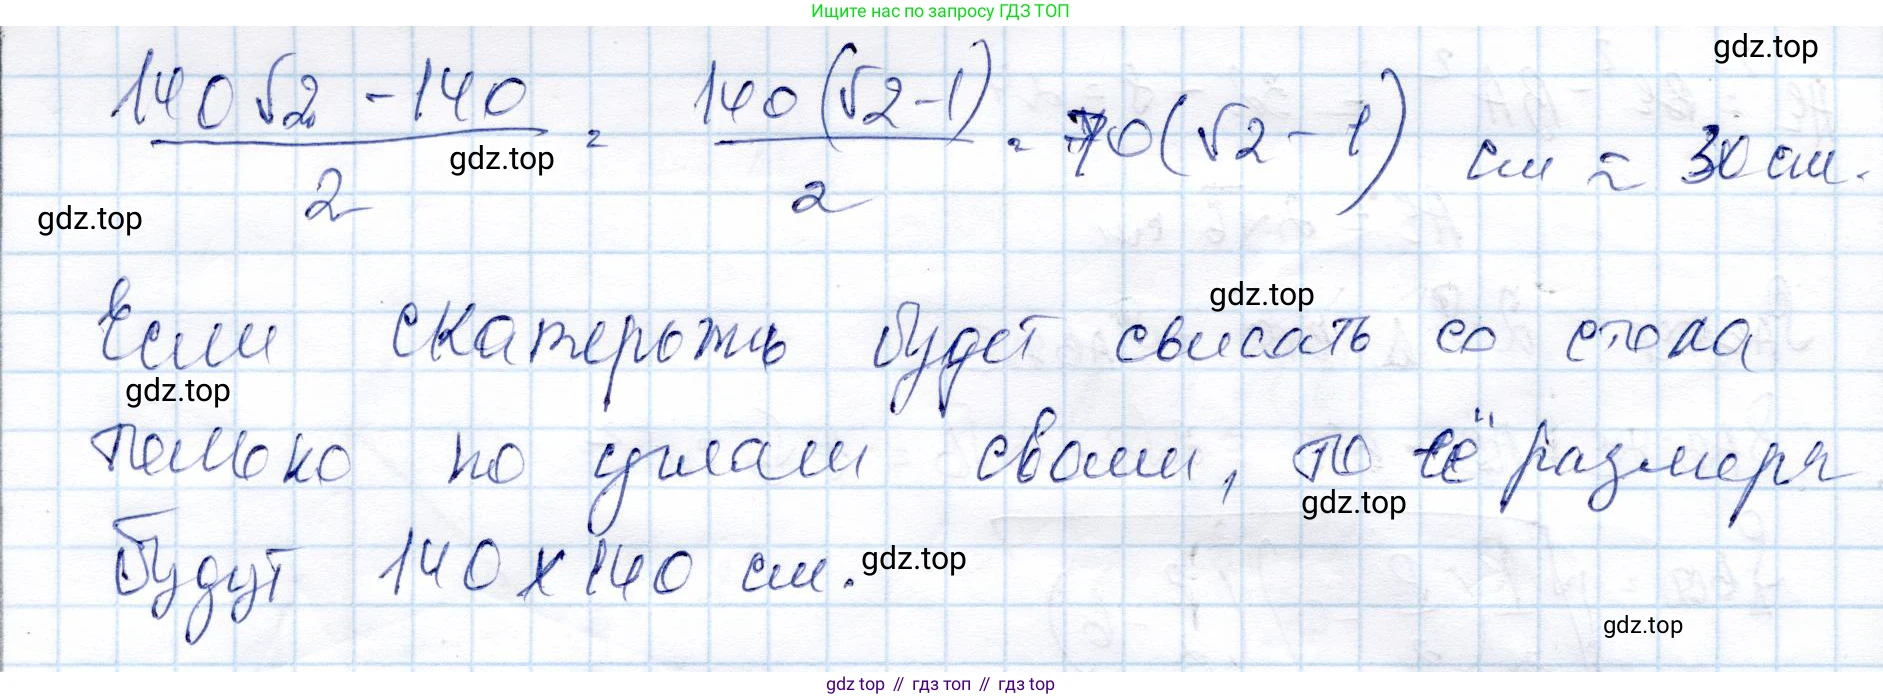 Ищите нас по запросу ГДЗ ТОП
gdz.top
(140√2 - 140)/2 = 140(√2-1)/2 = 70(√2-1) см ≈ 30 см.
gdz.top
gdz.top
gdz.top
Если скатерть будет свисать со стола
gdz.top
только по углам своим, то её размеры
gdz.top
будут 140 x 140 см.
gdz.top
gdz.top
gdz top // гдз топ // гдз top